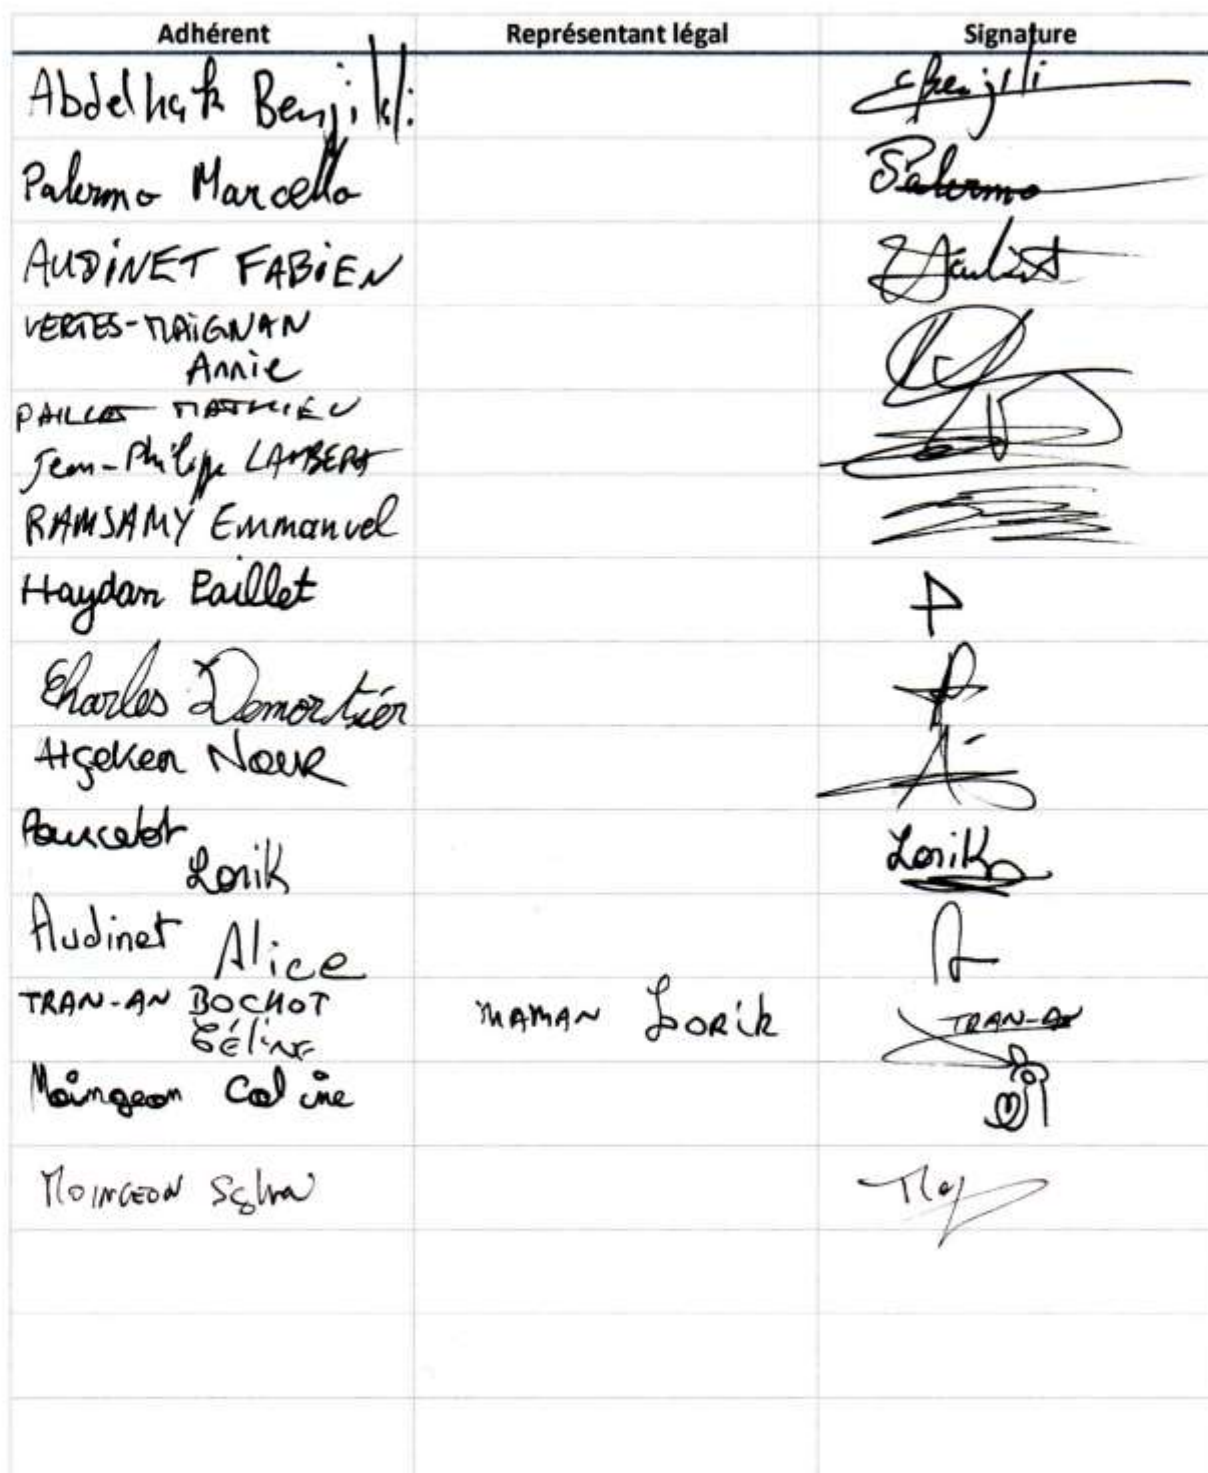 Adhérent Représentant légal Signature
Abdelhak Benjilili
Palermo Marcello Palermo
AUDINET FABIEN
VERTES-MAIGNAN
Annie
PAILLET MATHIEU
Jean-Philippe LAMBERT
RAMSAMY Emmanuel
Haydan Paillet
Charles Demortier
Nour
Lorik Lorik
Audinet Alice
TRAN-AN BOCHOT MAMAN Lorik TRAN-AN
Céline
Moingeon Coline
MOINGEON Sylvai